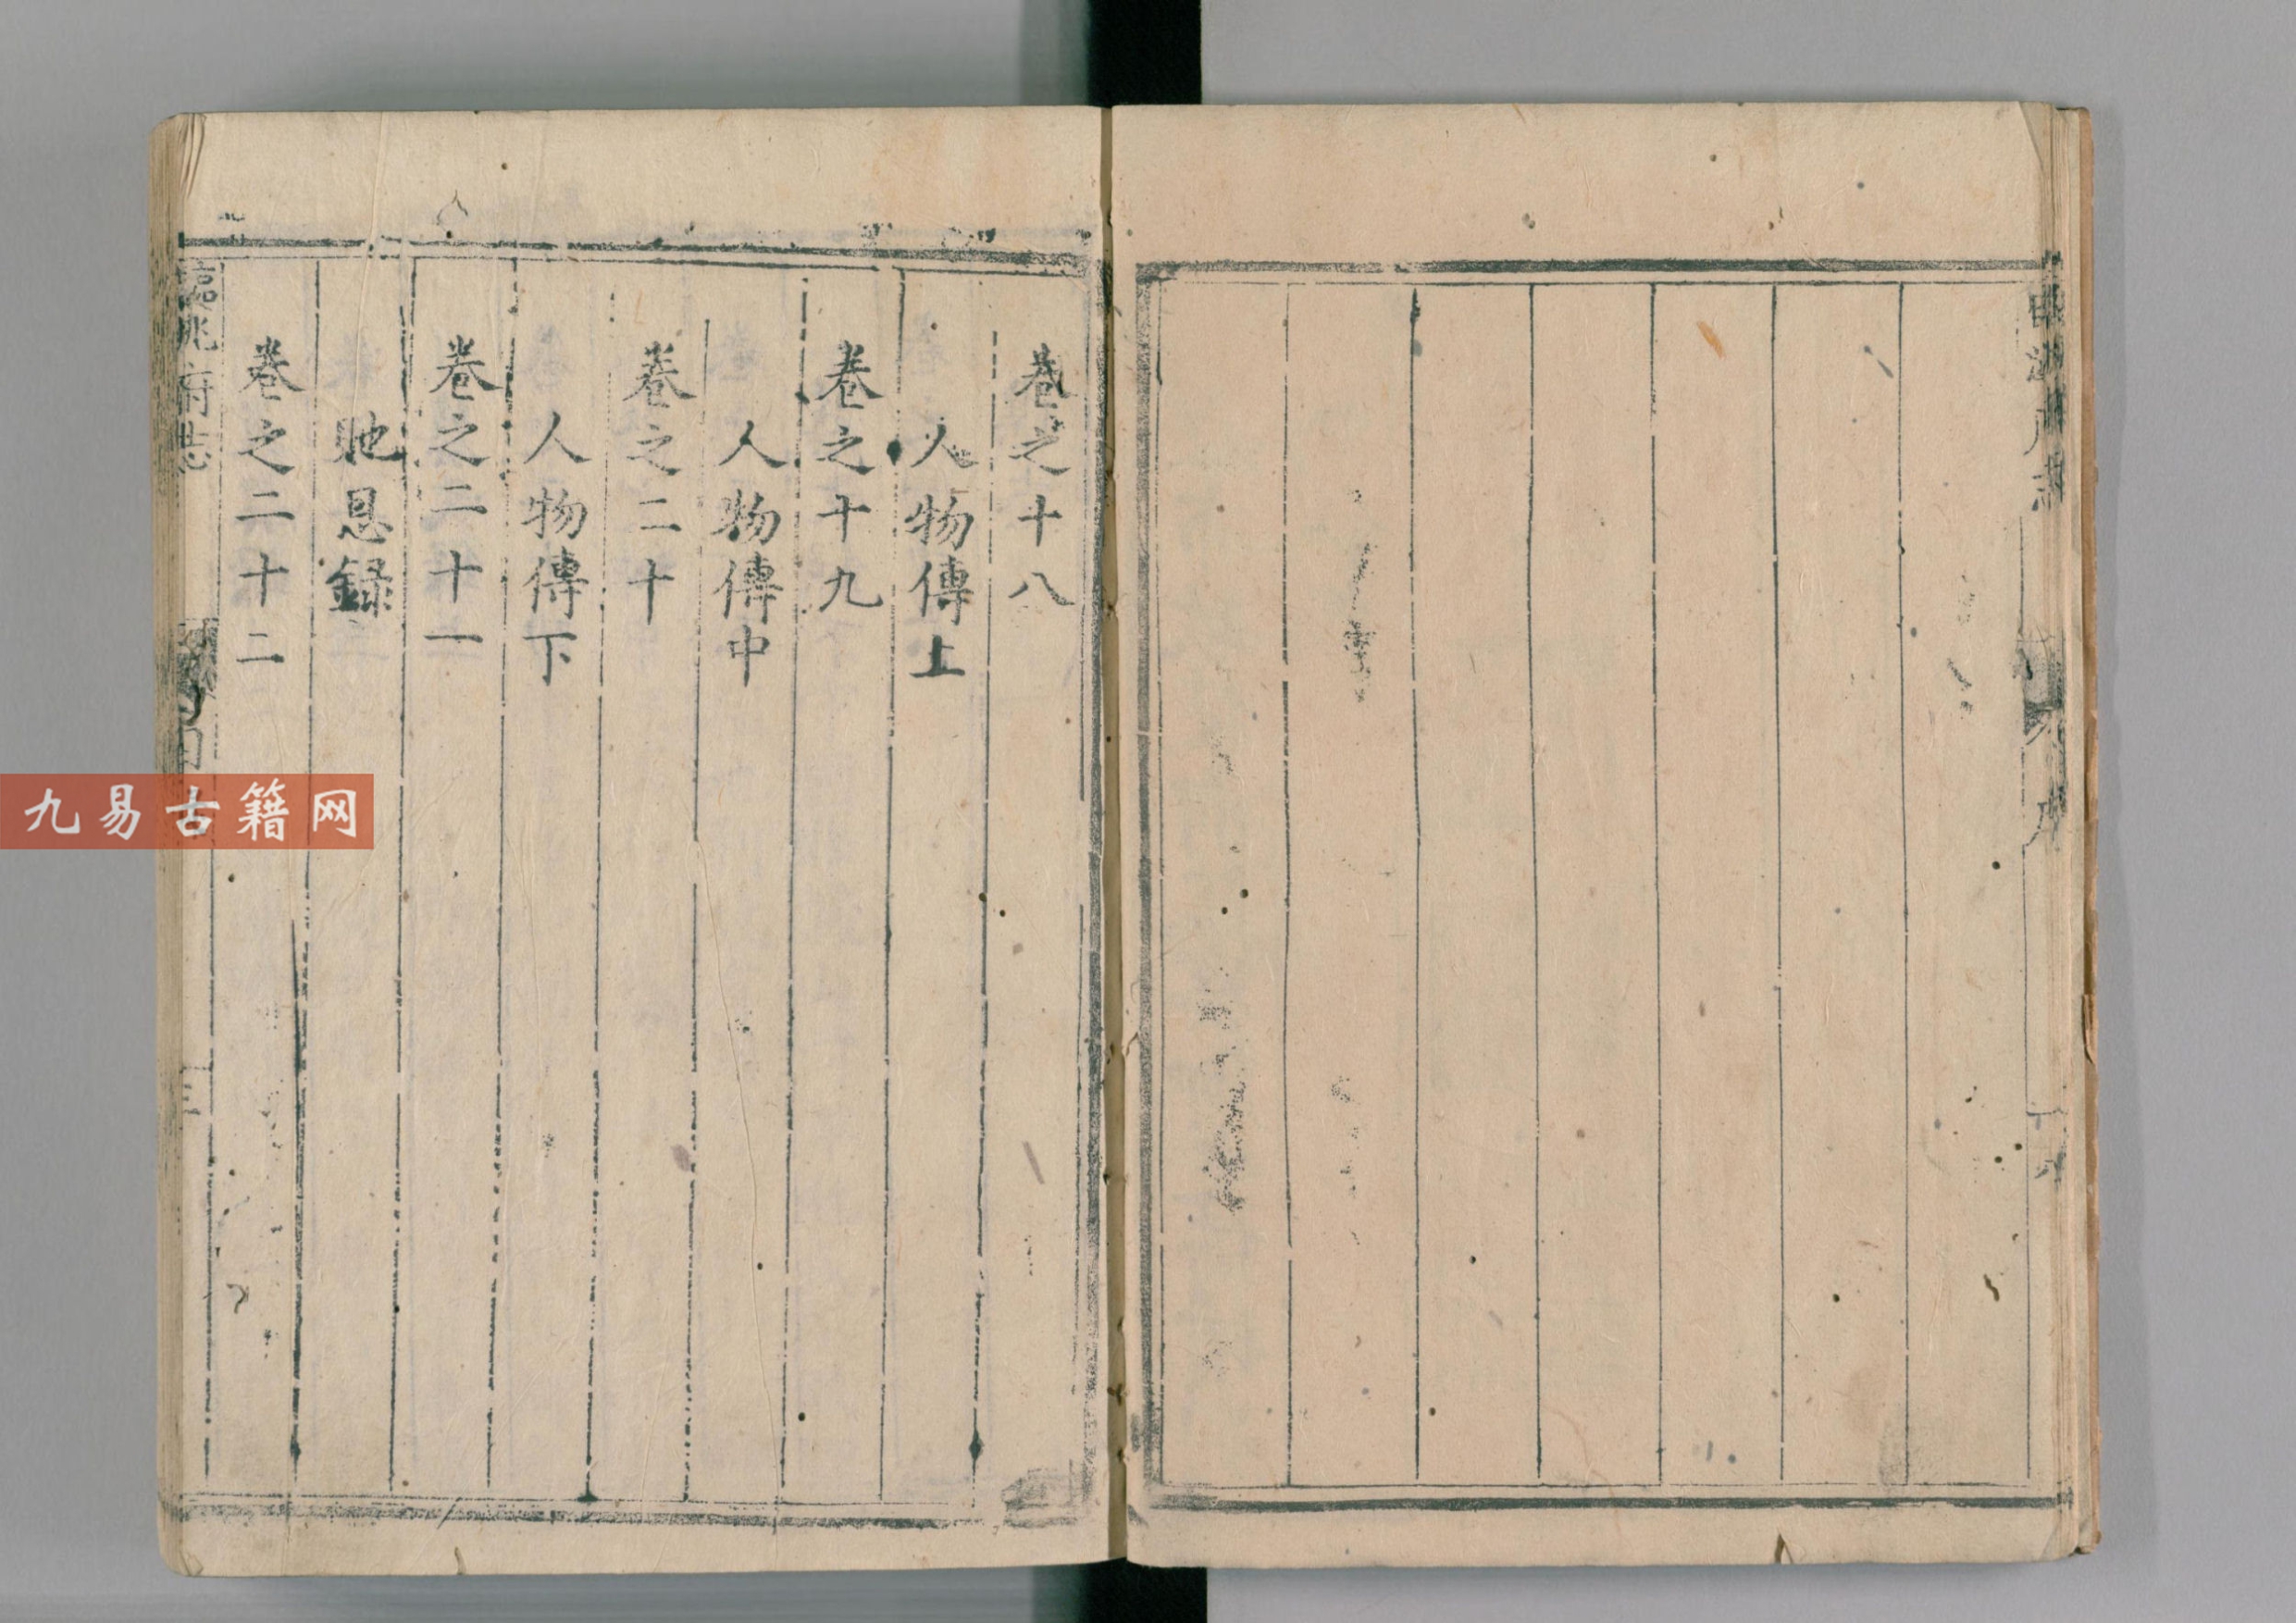 卷之十八
人物傳上
卷之十九
人物傳中
卷之二十
人物傳下
卷之二十一
貤恩録
卷之二十二
臨洮府志
九易古籍网